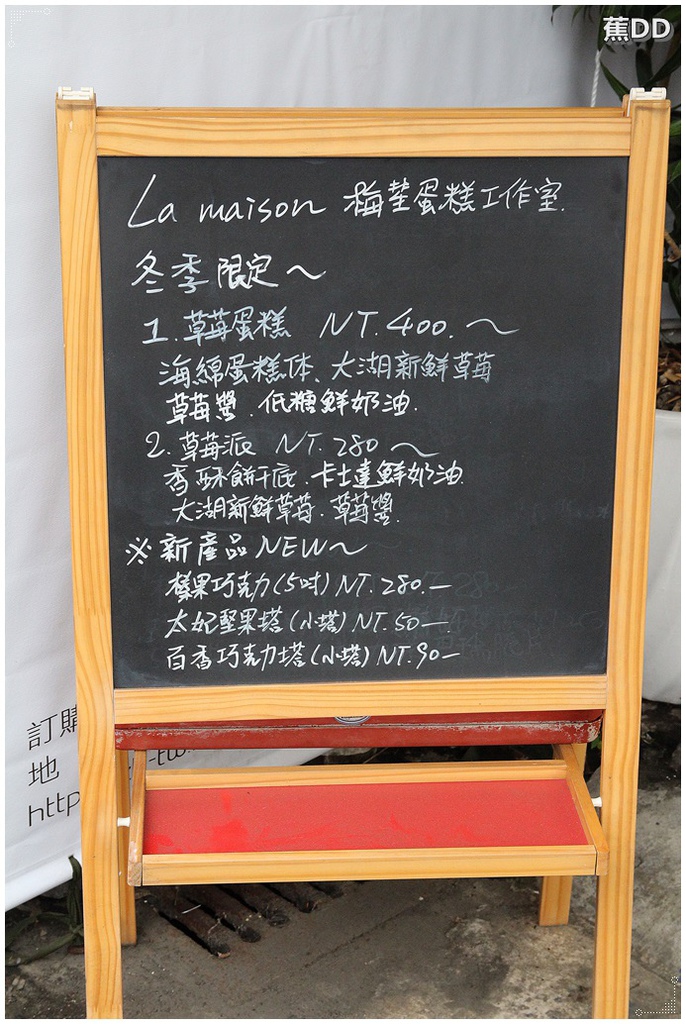 蕉DD
La maison 梅莖蛋糕工作室.
冬季限定~
1.草莓蛋糕 NT.400.~
海綿蛋糕体、大湖新鮮草莓
草莓醬.低糖鮮奶油.
2.草莓派 NT.280~
香酥餅干底.卡士達鮮奶油.
大湖新鮮草莓.草莓醬.
※新產品NEW~
榛果巧克力(5吋)NT.280.—
太妃堅果塔(小塔)NT.50—.
百香巧克力塔(小塔)NT.90—
訂購
地
http